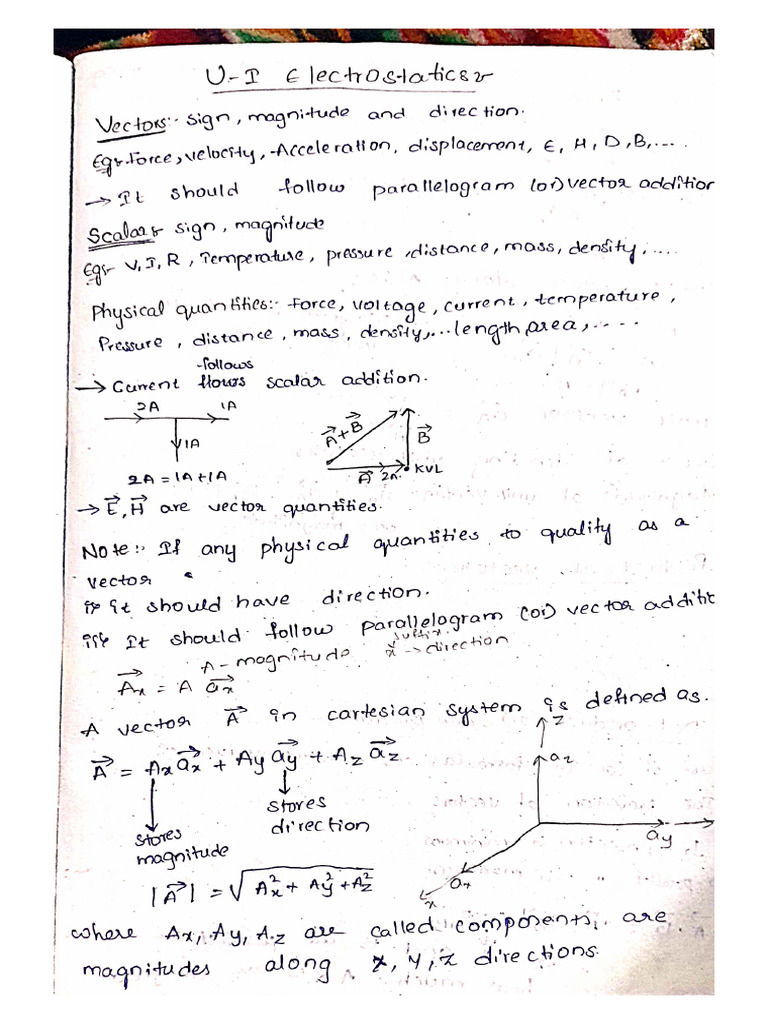 U-I Electrostatics:-
Vectors:- sign, magnitude and direction.
Eg:- Force, velocity, Acceleration, displacement, E, H, D, B,....
→ It should follow parallelogram (or) vector addition
Scalar:- sign, magnitude
Eg:- V, I, R, Temperature, pressure, distance, mass, density,....
Physical quantities:- Force, voltage, current, temperature,
Pressure, distance, mass, density,...length, area,.....
follows
→ Current flows scalar addition.
2A 1A
1A
2A = 1A + 1A
A⃗+B⃗ B⃗
A⃗ 2A. KVL
→ E⃗, H⃗ are vector quantities.
Note:- If any physical quantities to quality as a
vector
i) it should have direction.
ii) It should follow parallelogram (or) vector additi
A - magnitude suffix x → direction
A⃗x = A a⃗x
A vector A⃗ in cartesian system is defined as.
A⃗ = Ax a⃗x + Ay a⃗y + Az a⃗z
stores magnitude
stores direction
z
az
ay
ax
x
|A⃗| = √Ax² + Ay² + Az²
where Ax, Ay, Az are called components, are
magnitudes along x, y, z directions.